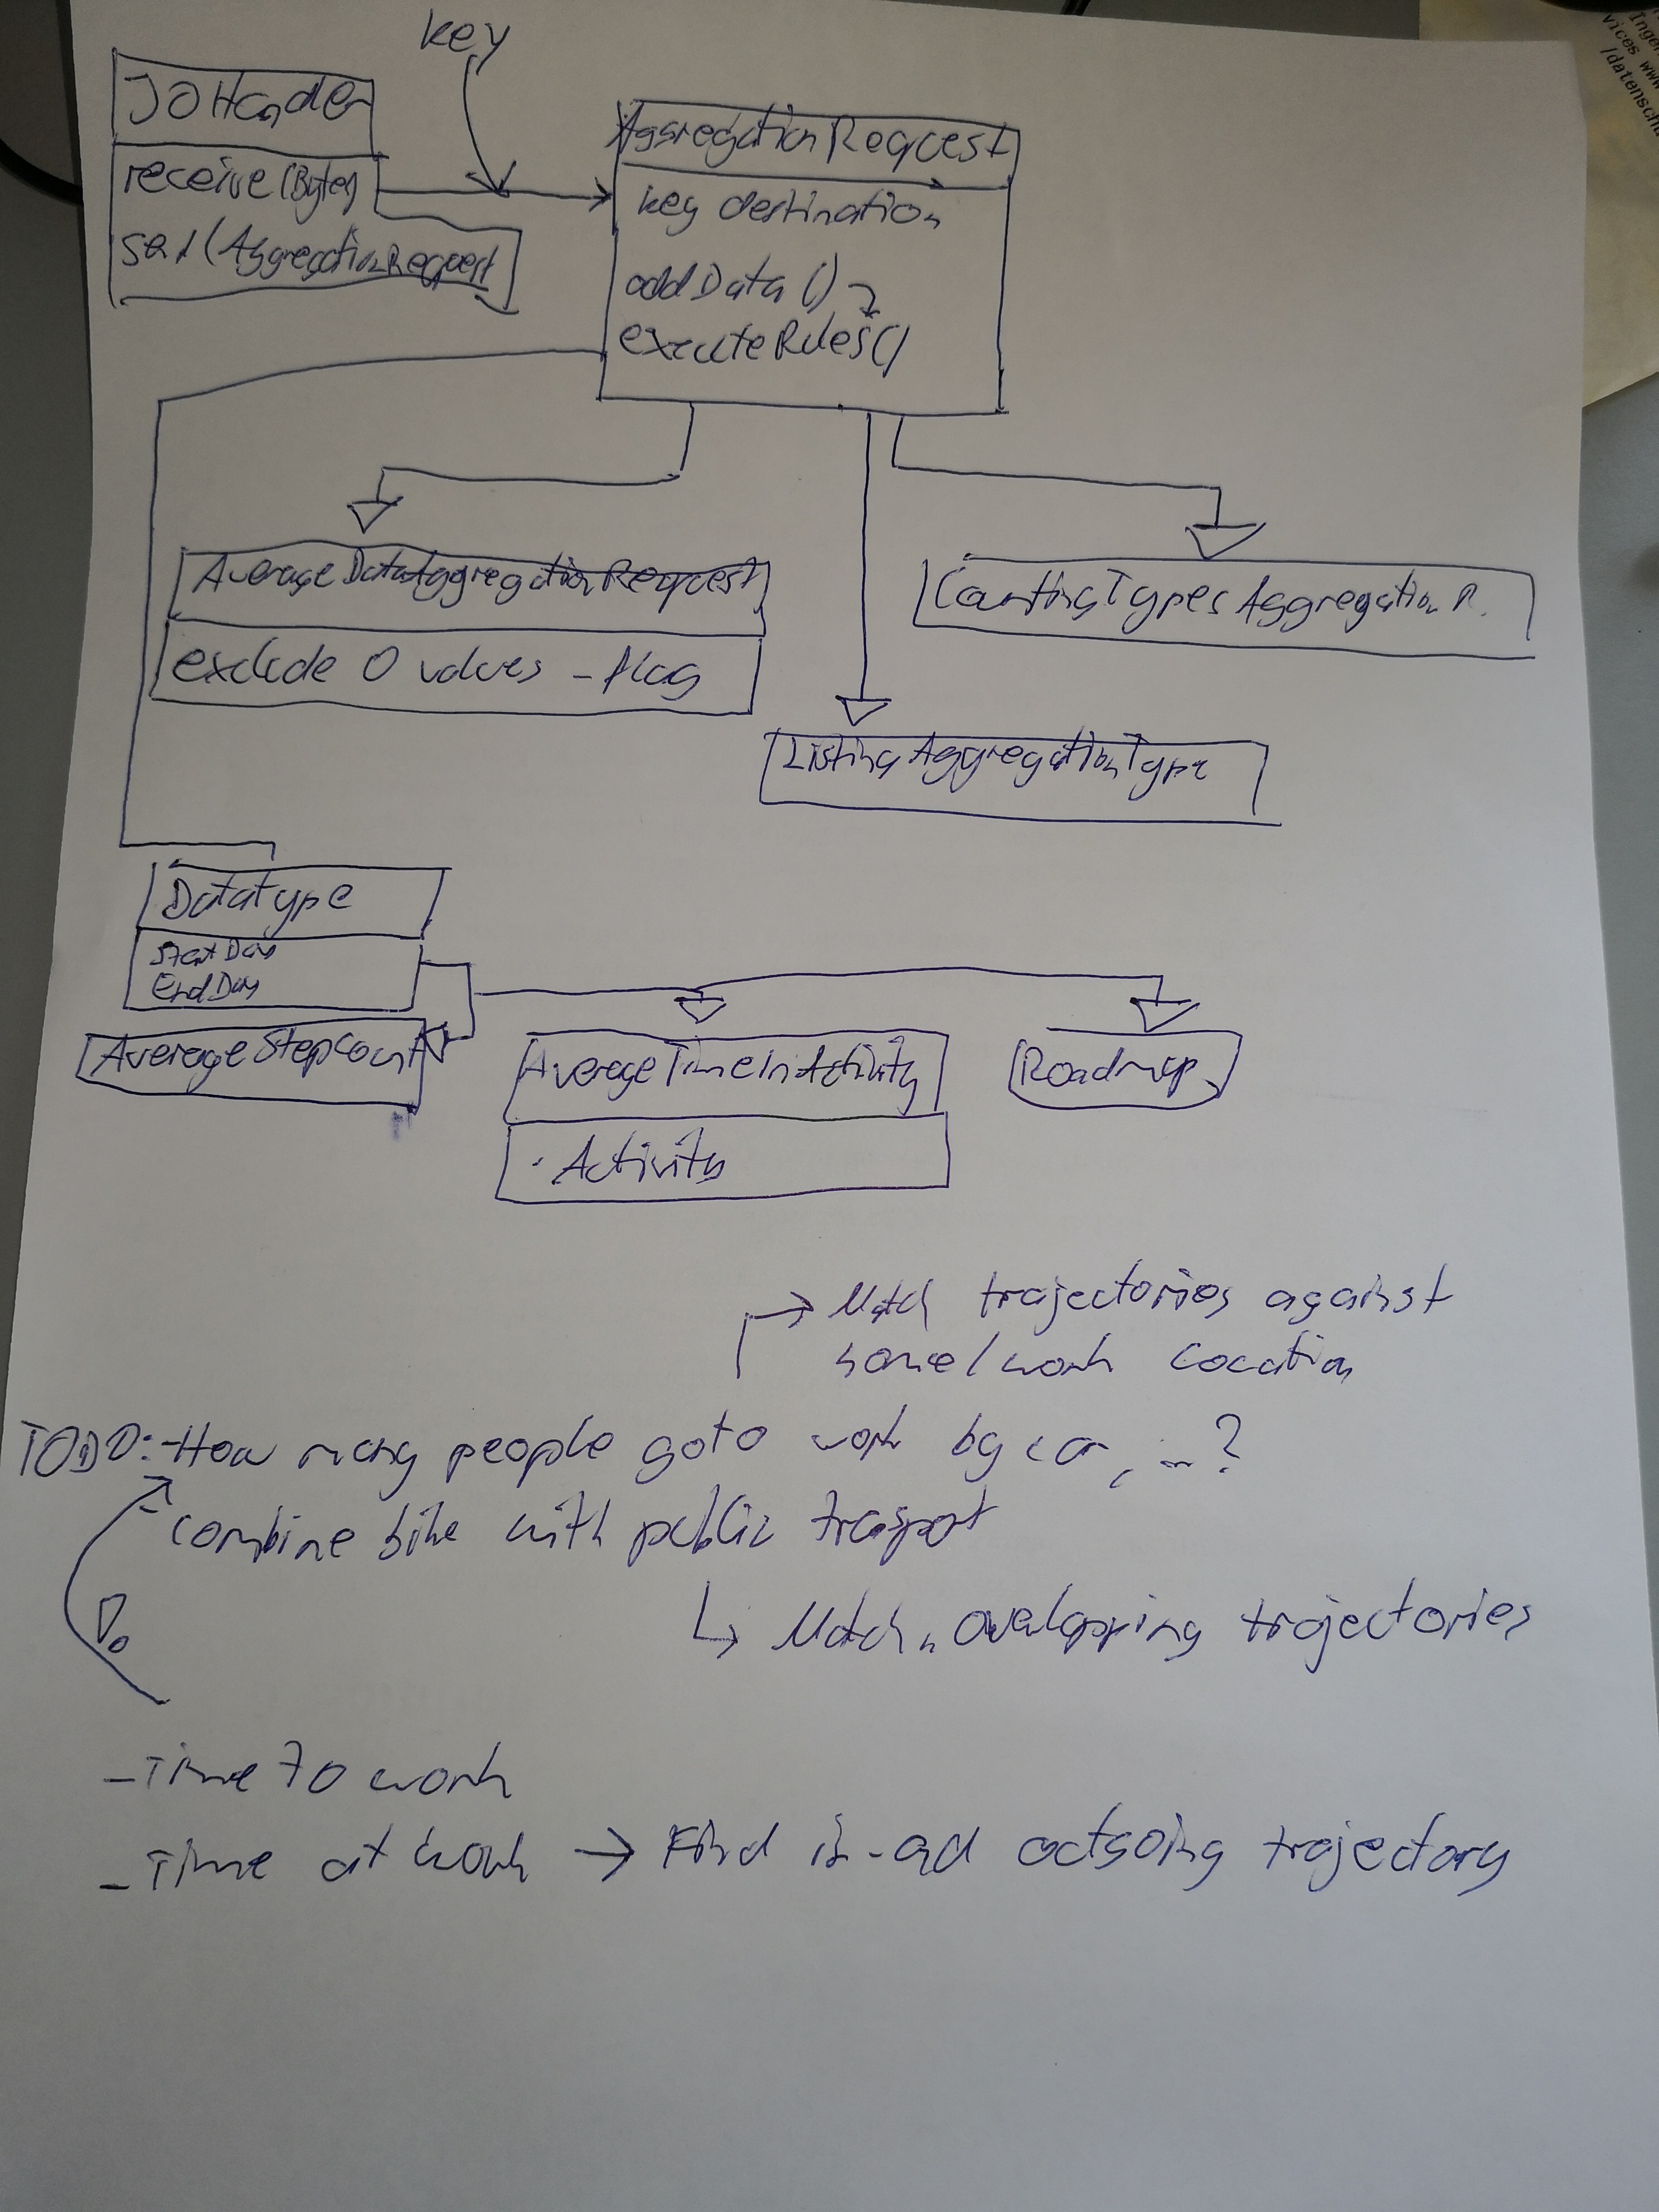 key
IOHandler
receive(Bytes)
send(AggregationRequest
AggregationRequest
key destination
addData()
executeRules()
AverageDataAggregationRequest
exclude 0 values - flag
CountingTypesAggregationR.
ListingAggregationType
Datatype
StartDay
EndDay
AverageStepCount
AverageTimeInActivity
· Activity
Roadmap
→ Match trajectories against
home/work location
TODO: - How many people go to work by car, ...?
- combine bike with public transport
↳ Match overlapping trajectories
- Time to work
- Time at work → Find in- and outgoing trajectory
Inge
vices www
/datensch